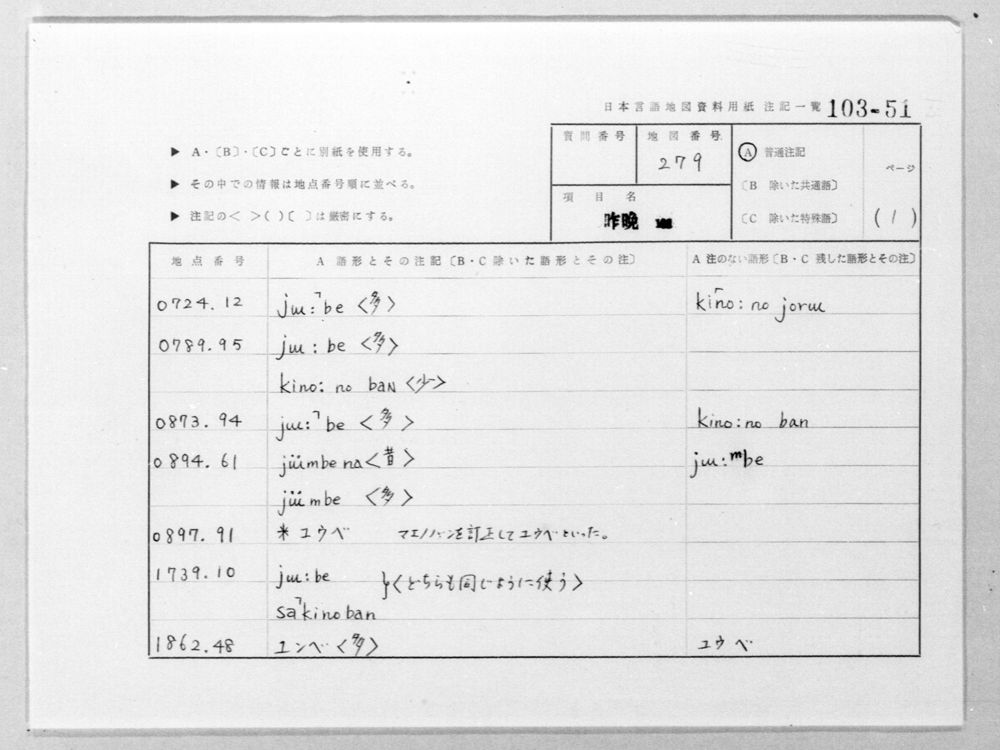 日本言語地図資料用紙 注記一覧 103-51
▶ A・〔B〕・〔C〕ごとに別紙を使用する。
▶ その中での情報は地点番号順に並べる。
▶ 注記の< >( )〔 〕は厳密にする。
質問番号
地図番号
279
項目名
昨晩
Ⓐ 普通注記
〔B 除いた共通語〕
〔C 除いた特殊語〕
ページ
(1)
地点番号 A 語形とその注記〔B・C除いた語形とその注〕 A 注のない語形〔B・C 残した語形とその注〕
0724.12 jɯː⌝be <多> ki⌈noː no jorɯ
0789.95 jɯː be <多>
kinoː no baN <少>
0873.94 jɯː⌝be <多> kinoː no ban
0894.61 jɯ̈mbe na <昔> jɯːᵐbe
jɯ̈mbe <多>
0897.91 *ユウベ マエノバンを訂正してユウベといった。
1739.10 jɯːbe }<どちらも同じように使う>
sa⌝kinoban
1862.48 ユンベ <多> ユウベ